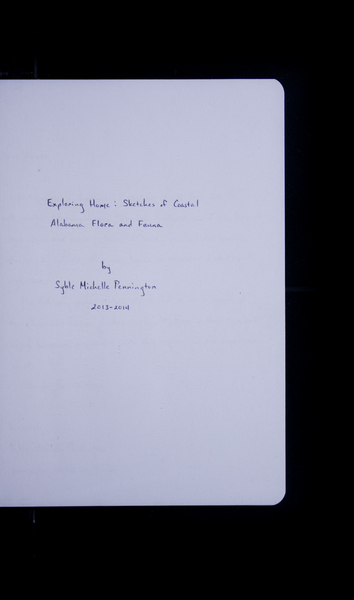 Exploring Home: Sketches of Coastal
Alabama Flora and Fauna
by
Syble Michelle Pennington
2013-2014